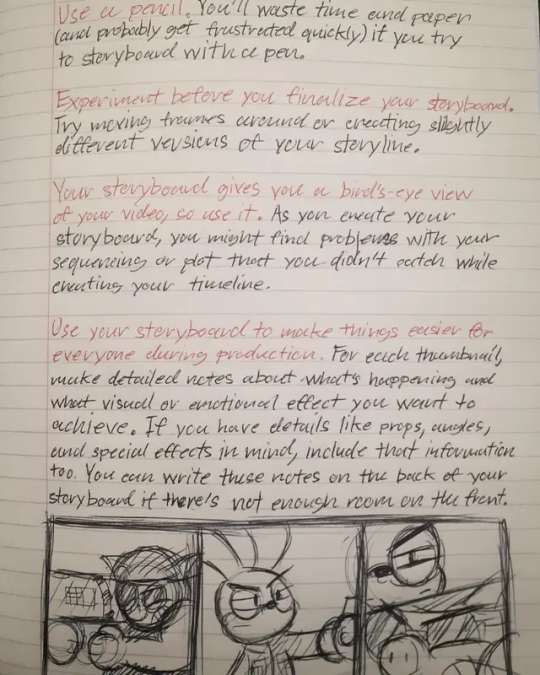 Use a pencil. You'll waste time and paper
(and probably get frustrated quickly) if you try
to storyboard with a pen.
Experiment before you finalize your storyboard.
Try moving frames around or creating slightly
different versions of your storyline.
Your storyboard gives you a bird's-eye view
of your video, so use it. As you create your
storyboard, you might find problems with your
sequencing or plot that you didn't catch while
creating your timeline.
Use your storyboard to make things easier for
everyone during production. For each thumbnail,
make detailed notes about what's happening and
what visual or emotional effect you want to
achieve. If you have details like props, angles,
and special effects in mind, include that information
too. You can write these notes on the back of your
storyboard if there's not enough room on the front.